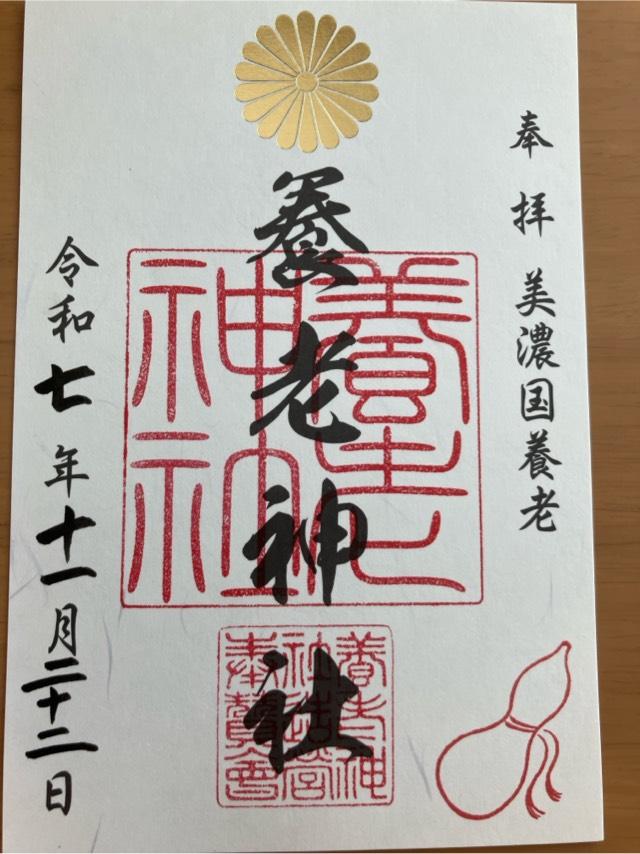 奉拝 美濃国養老
養老神社
令和七年十一月二十二日
養老
神社
養老神
社造営
奉賛會